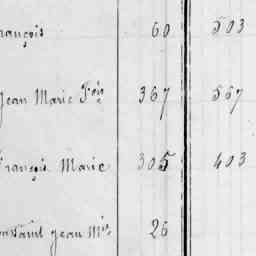 rançois 60 503
Jean Marie Fois 367 567
François Marie 305 403
onstant Jean Mie 26